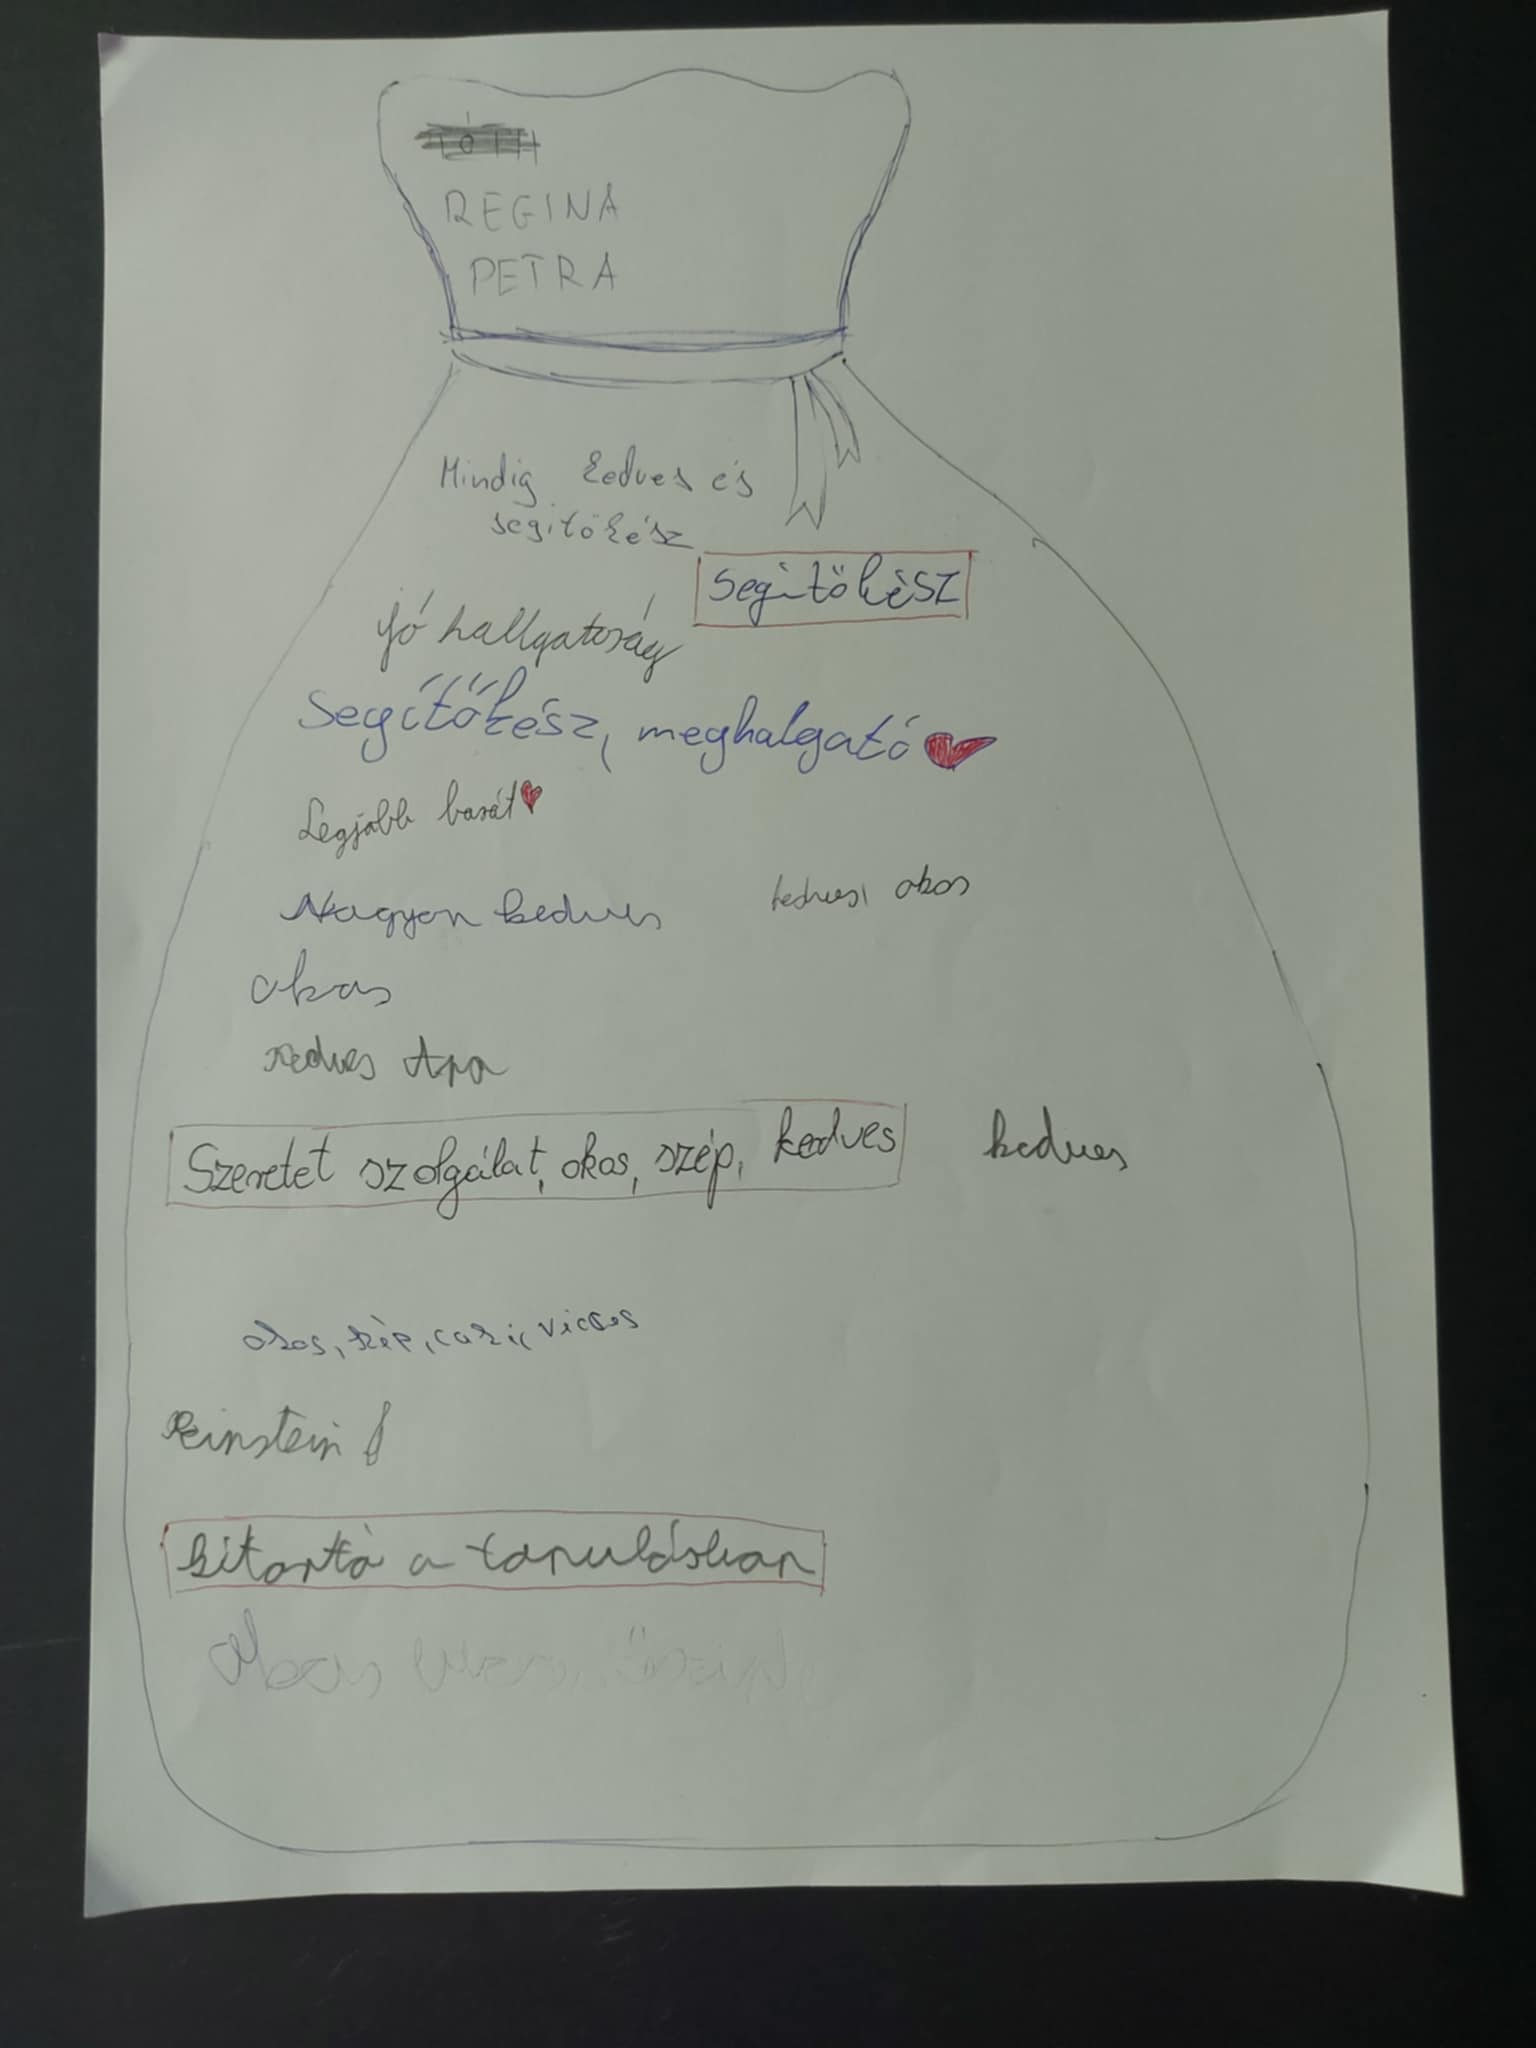 REGINA
PETRA
Mindig kedves és
segítőkész
Segítőkész
Jó hallgatóság
Segítőkész, meghalgató
Legjobb barát
Nagyon kedves
kedves, okos
okos
kedves
Szeretet szolgálat, okos, szép, kedves
kedves
okos, szép, cuki, vicces
Einstein
kitartó a tanulásban
Okos